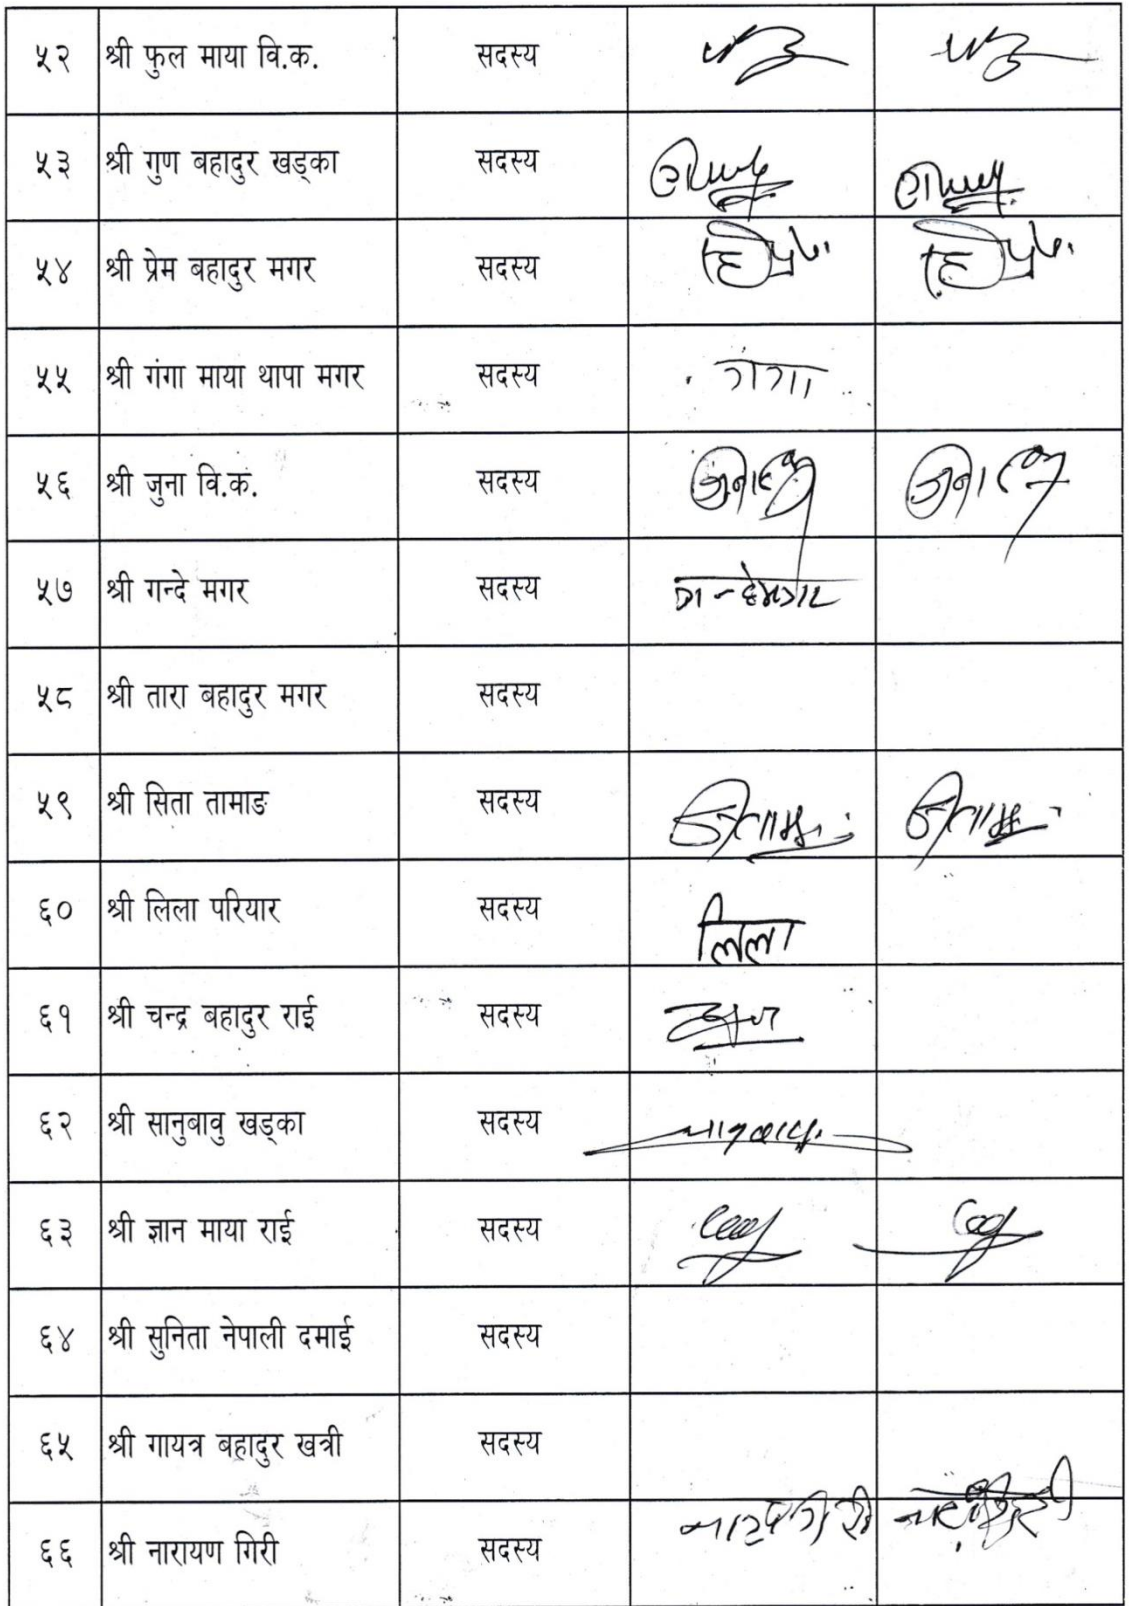 ५२ श्री फुल माया वि.क. सदस्य
५३ श्री गुण बहादुर खड्का सदस्य
५४ श्री प्रेम बहादुर मगर सदस्य
५५ श्री गंगा माया थापा मगर सदस्य गंगा
५६ श्री जुना वि.क. सदस्य
५७ श्री गन्दे मगर सदस्य
५८ श्री तारा बहादुर मगर सदस्य
५९ श्री सिता तामाङ सदस्य
६० श्री लिला परियार सदस्य लिला
६१ श्री चन्द्र बहादुर राई सदस्य
६२ श्री सानुबावु खड्का सदस्य
६३ श्री ज्ञान माया राई सदस्य
६४ श्री सुनिता नेपाली दमाई सदस्य
६५ श्री गायत्र बहादुर खत्री सदस्य
६६ श्री नारायण गिरी सदस्य